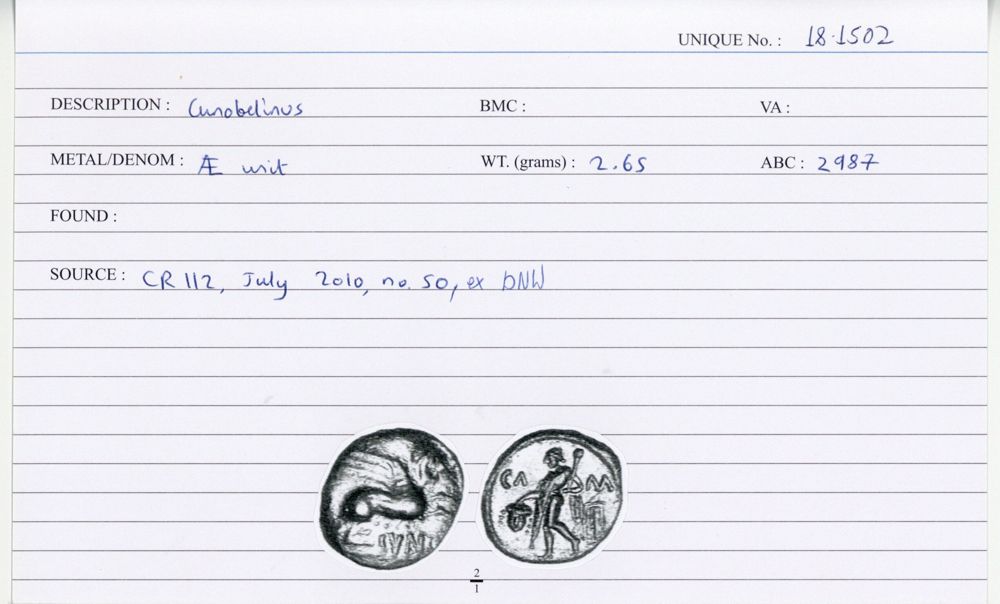 UNIQUE No. : 18·1502
DESCRIPTION : Cunobelinus BMC : VA :
METAL/DENOM : Æ unit WT. (grams) : 2.65 ABC : 2987
FOUND :
SOURCE : CR 112, July 2010, no. 50, ex DNW
CA M
2
1